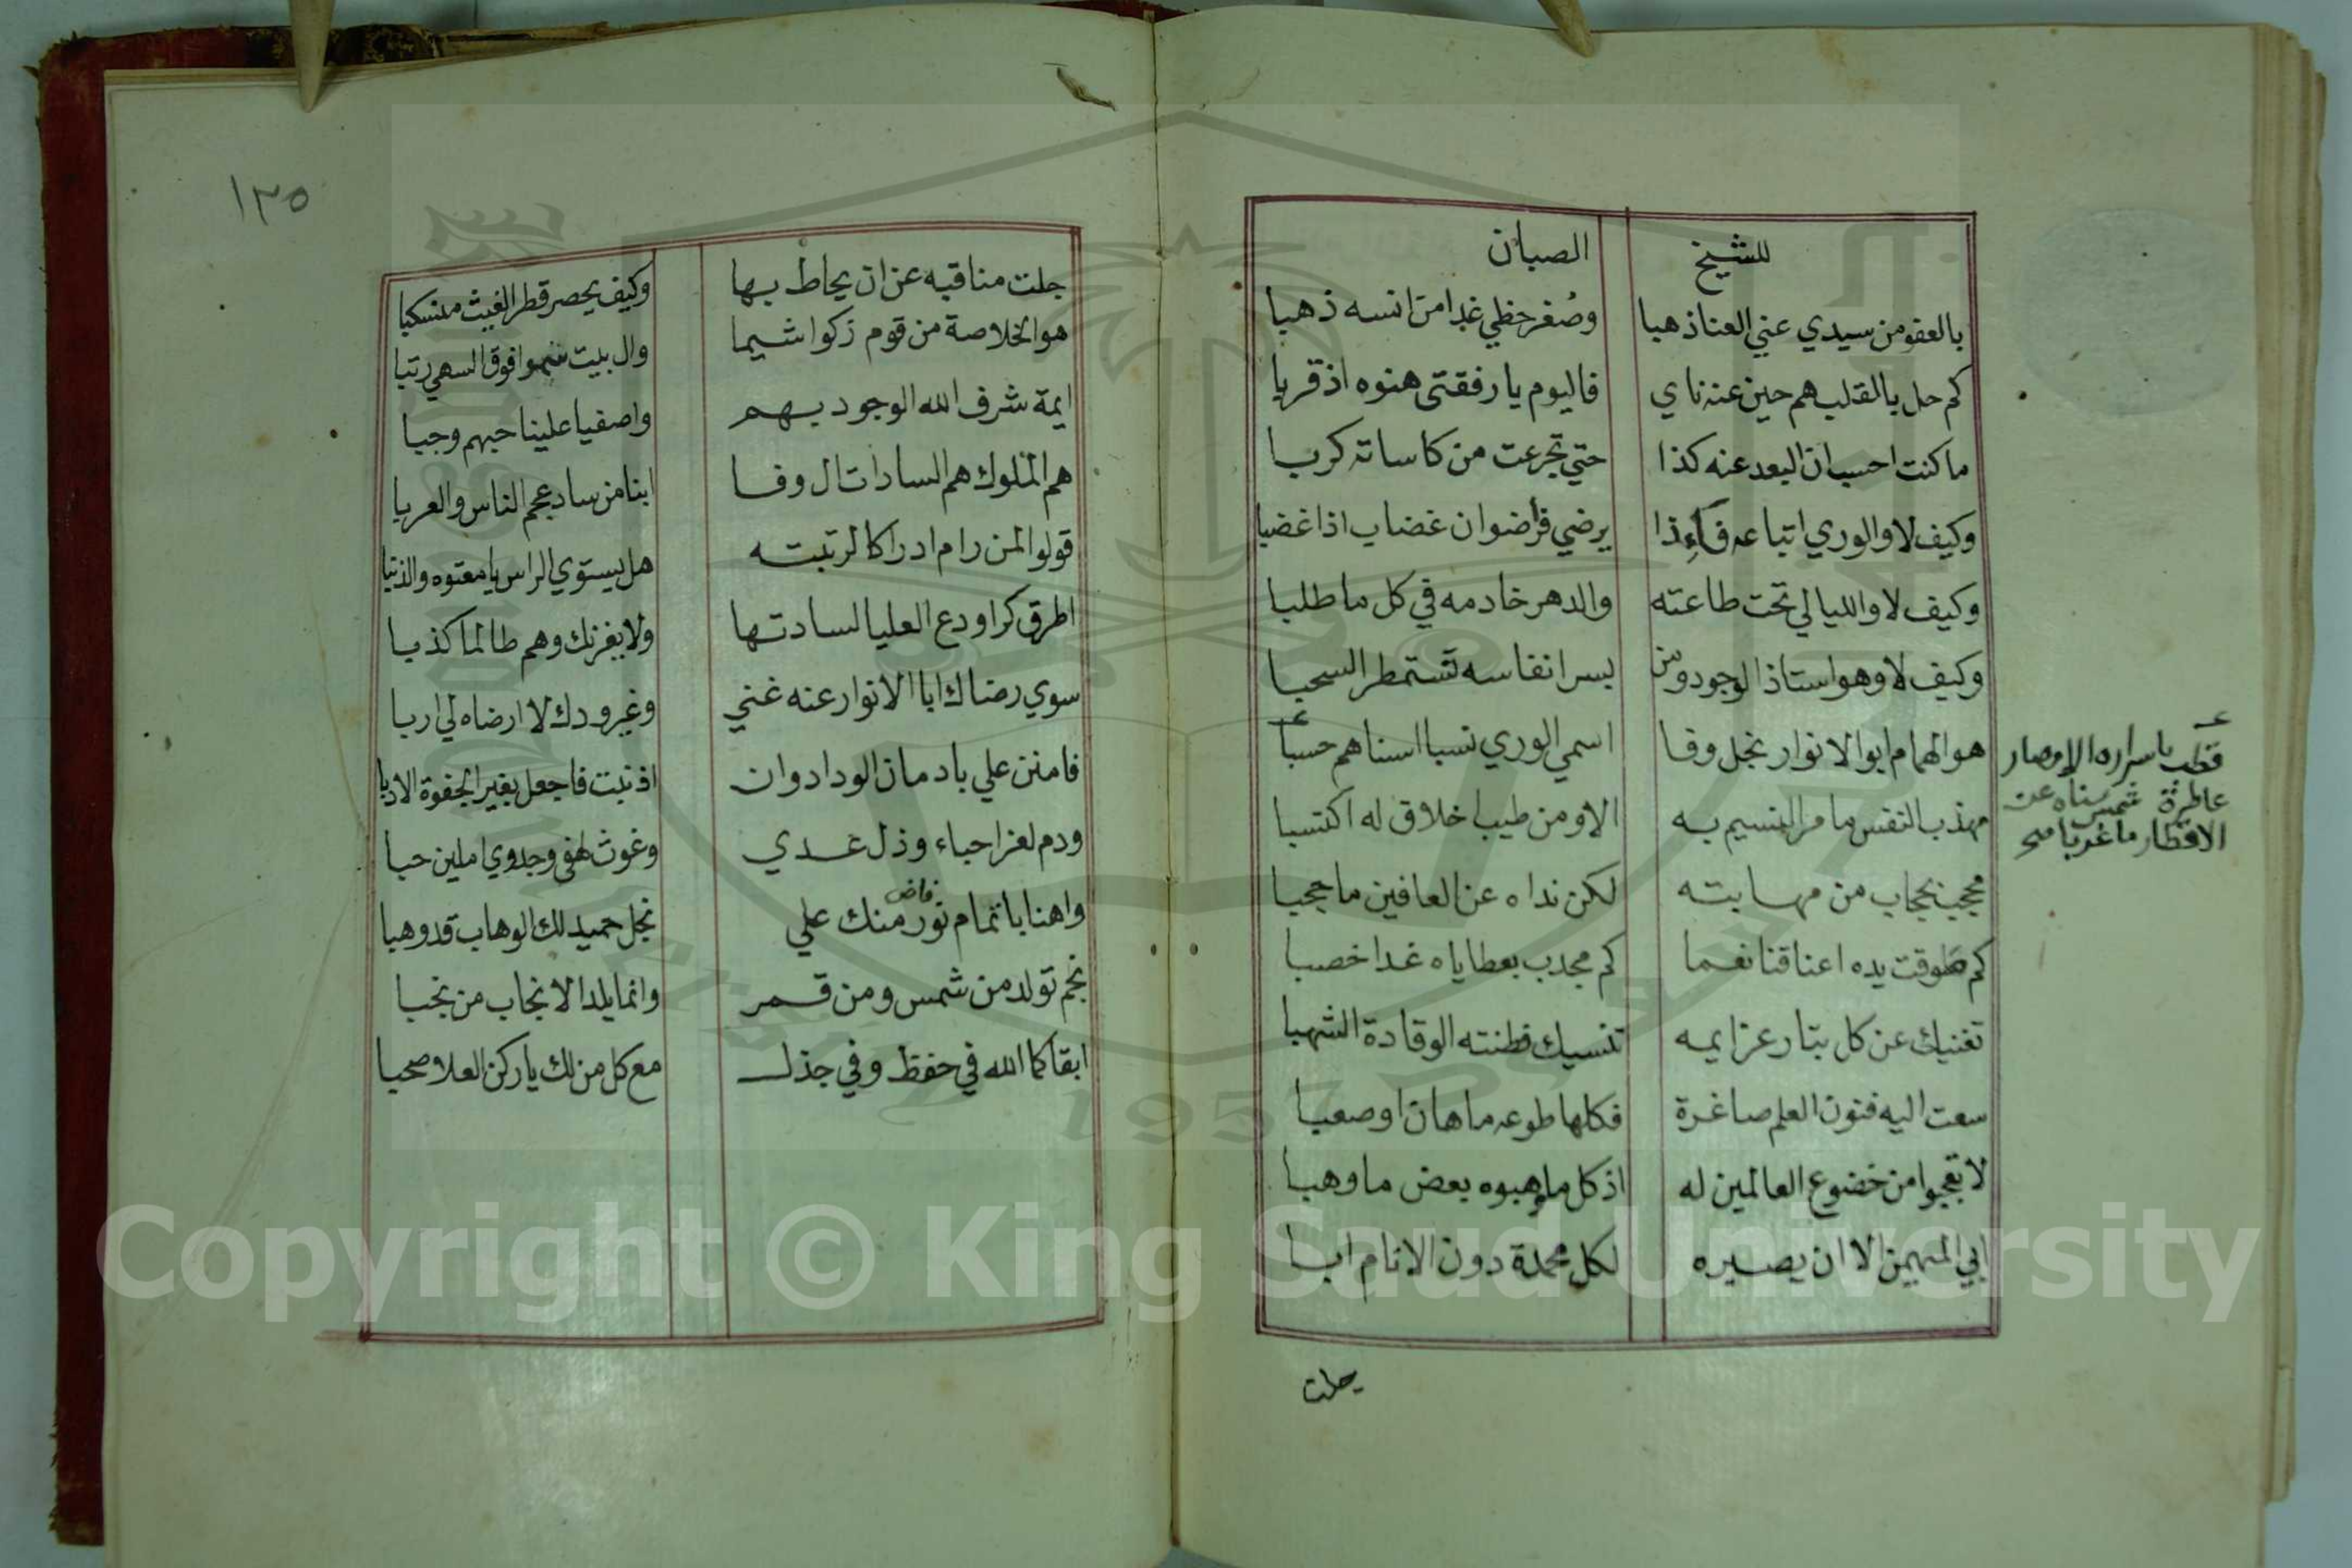 للشيخ الصبان
بالعفو من سيدي عني العنا ذهبا وصُفر حظي غدا من انسه ذهبا
كم حل بالقلب هم حين عنه ناي فاليوم يا رفقتي هنوه اذ قربا
ما كنت احسب ان البعد عنه كذا حتي تجرعت من كاساته كربا
وكيف لا والوري اتباعه فاءذا يرضي فراضوان غضاب اذا غضبا
وكيف لا والليالي تحت طاعته والدهر خادمه في كل ما طلبا
وكيف لا وهو استاذ الوجود ومن بسر انفاسه تستمطر السحبا
هو الهمام ابو الانوار نجل وفا اسمي الوري نسبا اسناهم حسبا
قطب باسراره الامصار
عاطرة شمس سناه عن
الاقطار ما غربا صح
مهذب النفس ما مر النسيم به الا ومن طيب اخلاق له اكتسبا
محجب بحجاب من مهابته لكن نداه عن العافين ما حجبا
كم طوقت يده اعناقنا نعما كم مجدب بعطاياه غدا خصبا
تغنيك عن كل بتار عزايمه تنسيك فطنته الوقادة الشهبا
سعت اليه فنون العلم صاغرة فكلها طوعه ما هان او صعبا
لا تعجبوا من خضوع العالمين له اذ كل ما وهبوه بعض ما وهبا
ابي المهيمن الا ان يصيره لكل محمدة دون الانام ابا
جلت
١٣٥
جلت مناقبه عن ان يحاط بها وكيف يحصر قطر الغيث منسكبا
هو الخلاصة من قوم زكوا شيما وال بيت سموا فوق السهي رتبا
ايمة شرف الله الوجود بهم واصفيا علينا حبهم وجبا
هم الملوك هم السادات ال وفا ابنا من ساد عجم الناس والعربا
قولوا لمن رام ادراكا لرتبته هل يستوي الراس يا معتوه والذنبا
اطرق كرا ودع العليا لسادتها ولا يغرنك وهم طالما كذبا
سوي رضاك ابا الانوار عنه غني وغير ودك لا ارضاه لي اربا
فامنن علي بادمان الوداد وان اذنبت فاجعل بغير الجفوة الادبا
ودم لعز احباء وذل عدي وغوث لهفي وجدوي املين حبا
واهنا باتمام نور فاض منك علي نجل حميد لك الوهاب قد وهبا
نجم تولد من شمس ومن قمر وانما يلد الانجاب من نجبا
ابقاكما الله في حفظ وفي جذل مع كل من لك يا ركن العلا صحبا
Copyright © King Saud University
1957